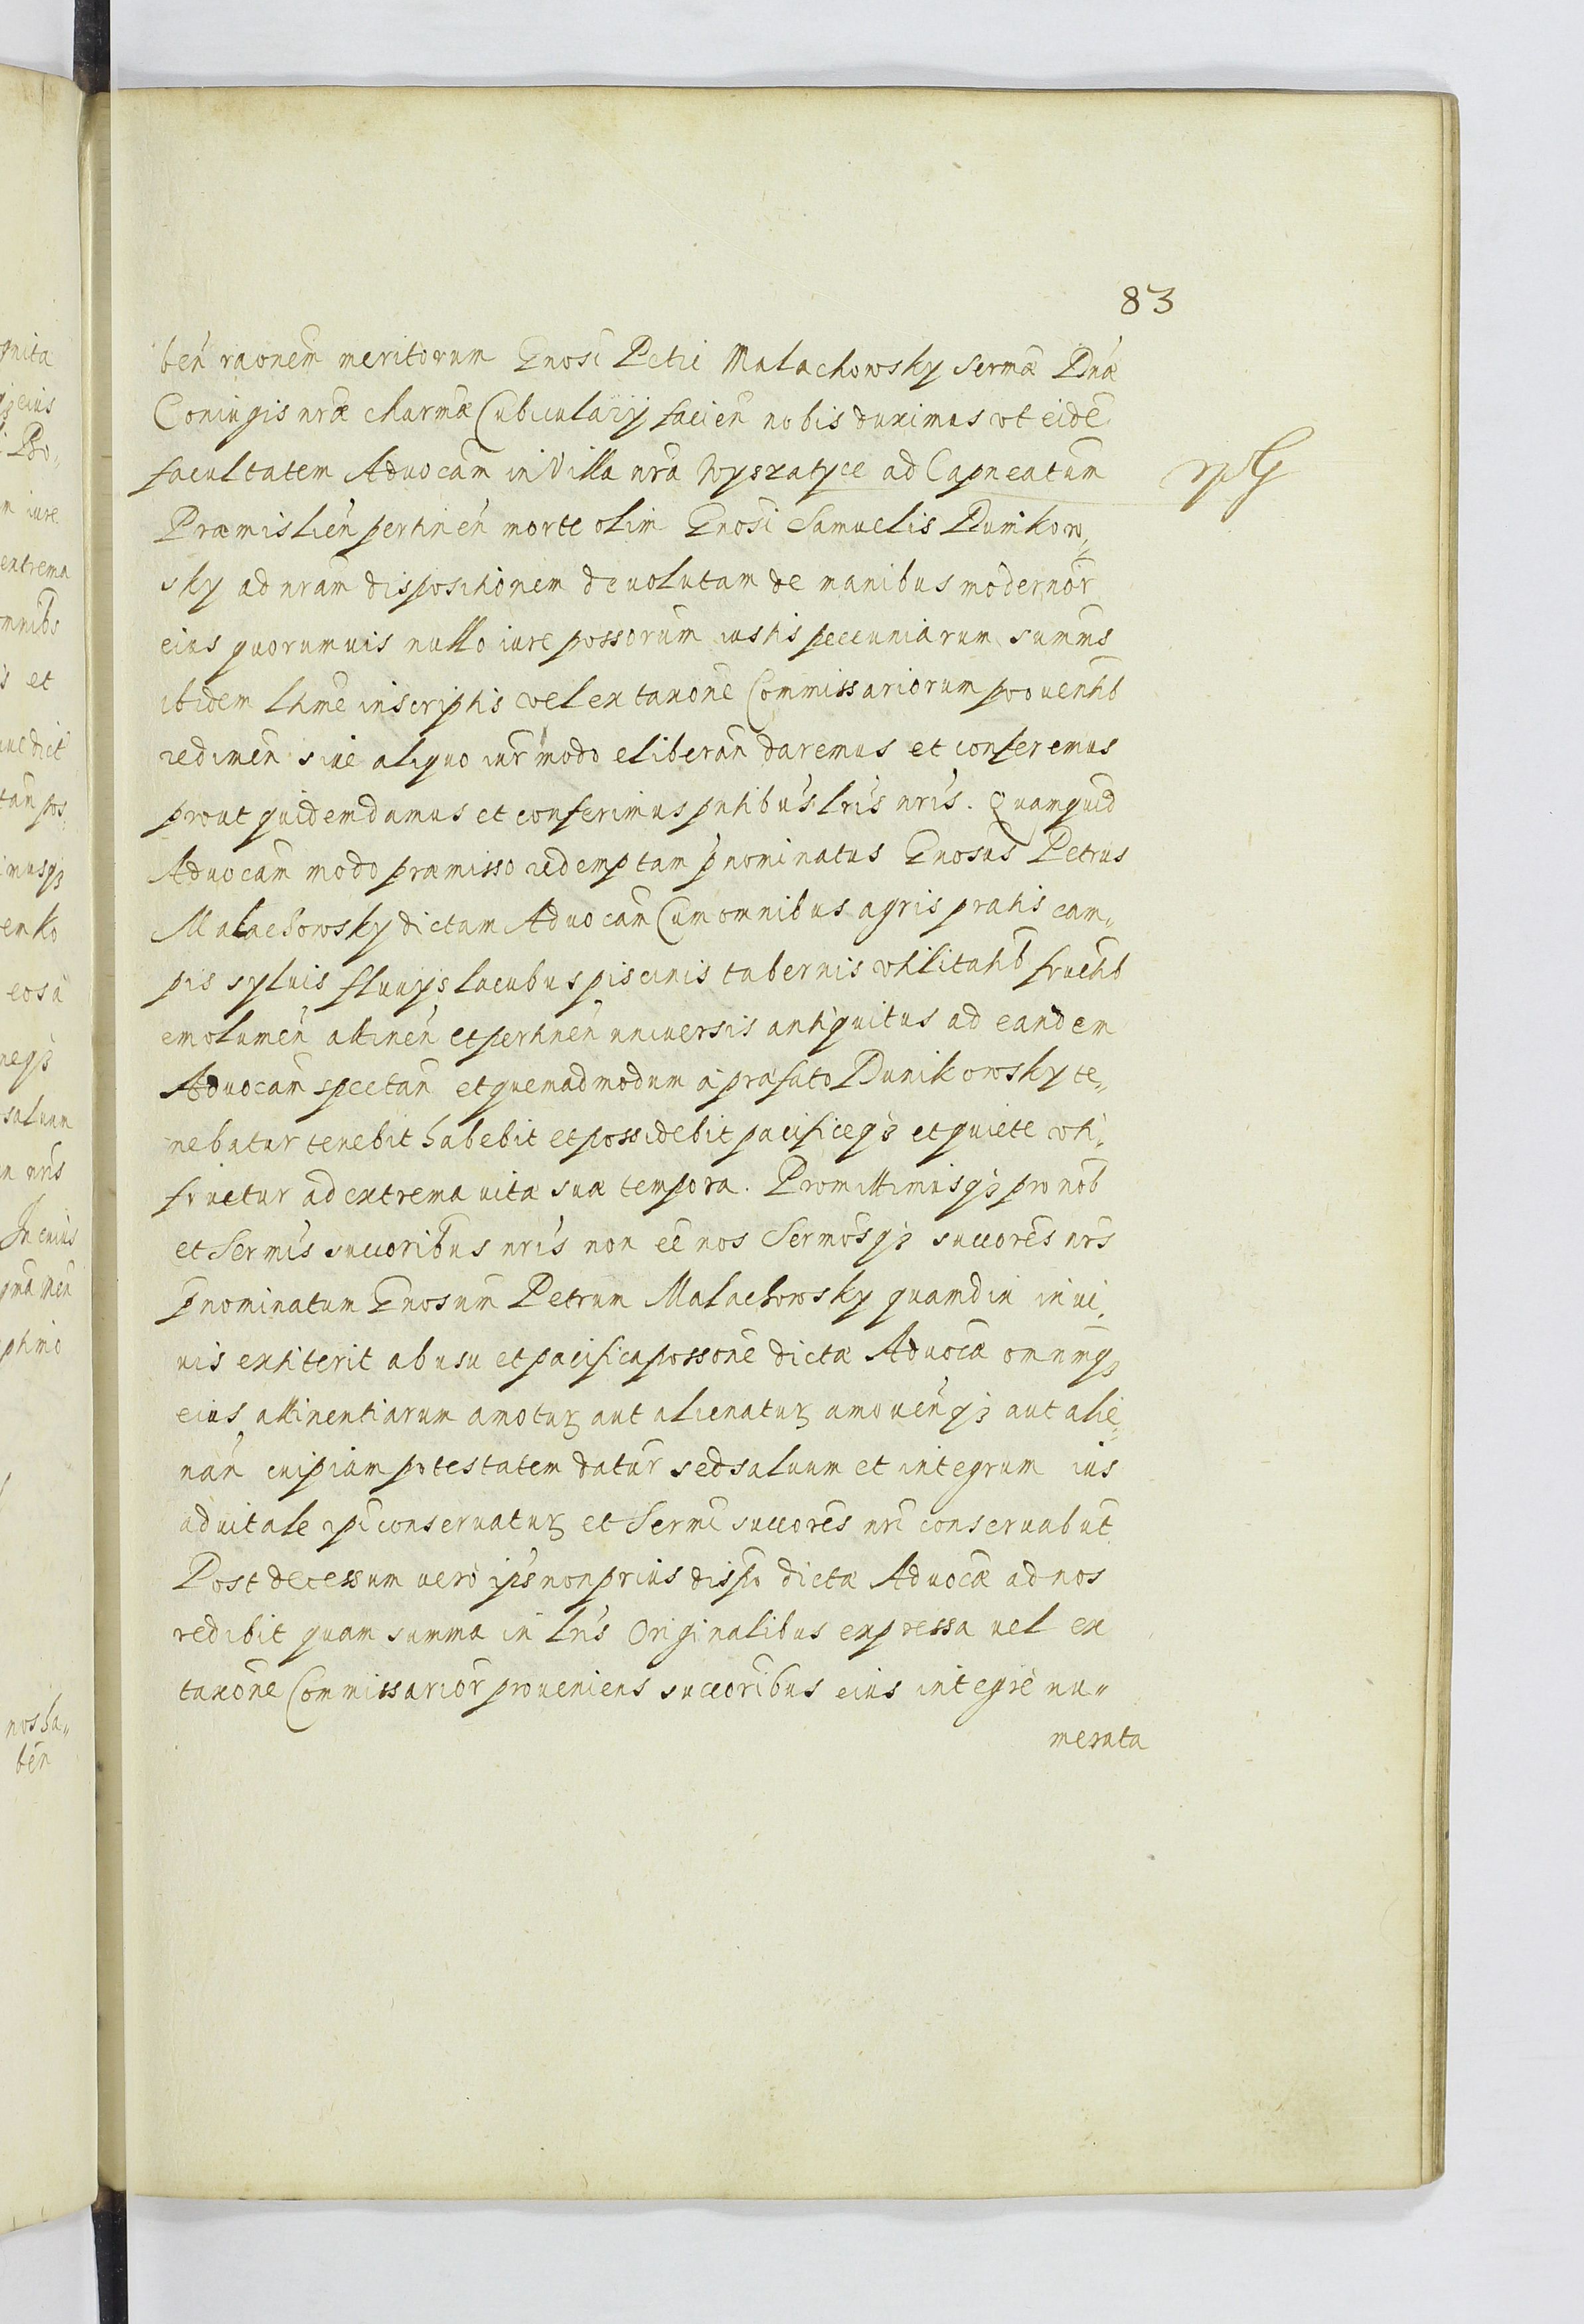 83
ben̄ raonem̄ meritorum Gnosi Petri Malachowsky Sermæ Dnæ
Coniugis nræ charmæ Cubicularij facien̄ nobis duximus vt eidē
facultatem Aduocam̄ in Villa nrā Wyszatyce ad Capneatum
Præmislien̄ pertinen̄ morte olim Gnosi Samuelis Dunikow„
sky ad nram̄ dispositionem deuolutam de manibus modernor̄
eius quorumuis nullo iure possorum̄ iustis pecuniarum summs̄
ibidem lhme inscriptis vel ex taxone Commissariorum prouentib̄
redimen̄ siue aliquo iur̄ modo eliberan̄ daremus et conferemus
prout quidem damus et conferimus pntibus lris nris. Quamquid̄
Aduocam̄ modo præmisso redemptam p̄nominatus Gnosus Petrus
Malachowsky dictam Aduocam̄ Cum omnibus agris pratis cam„
pis syluis fluuijs lacubus piscinis tabernis vtilitatib̄ fructib̄
emolumen̄ attinen̄ et pertinen̄ vniuersis antiquitus ad eandem
Aduocam̄ spectan̄ et quemadmodum à præfato Dunikowsky te„
nebatur tenebit habebit et possidebit pacificeqȝ et quiete vti„
fruetur ad extrema vitæ suæ tempora. Promittimusqȝ pro nob̄
et Sermis succoribus nris non eē nos Sermosqȝ succores nrs̄
p̄nominatum Gnosum Petrum Malachowsky quamdiu in vi„
uis extiterit ab usu et pacifica possone dictæ Aduocæ omnmqȝ
eius attinentiarum amotur̄ aut alienatur̄ amouen̄qȝ aut alie„
nan̄ cuipiam potestatem datur̄ sed saluum et integrum ius
aduitale ipi conseruatur̄ et Sermi succores nri conseruabūt
Post decessum vero ips̄ non prius dispo dictæ Aduocæ ad nos
redibit quam summa in lris Originalibus expressa vel ex
taxone Commissarior̄ proueniens succoribus eius integrè nu„
merata